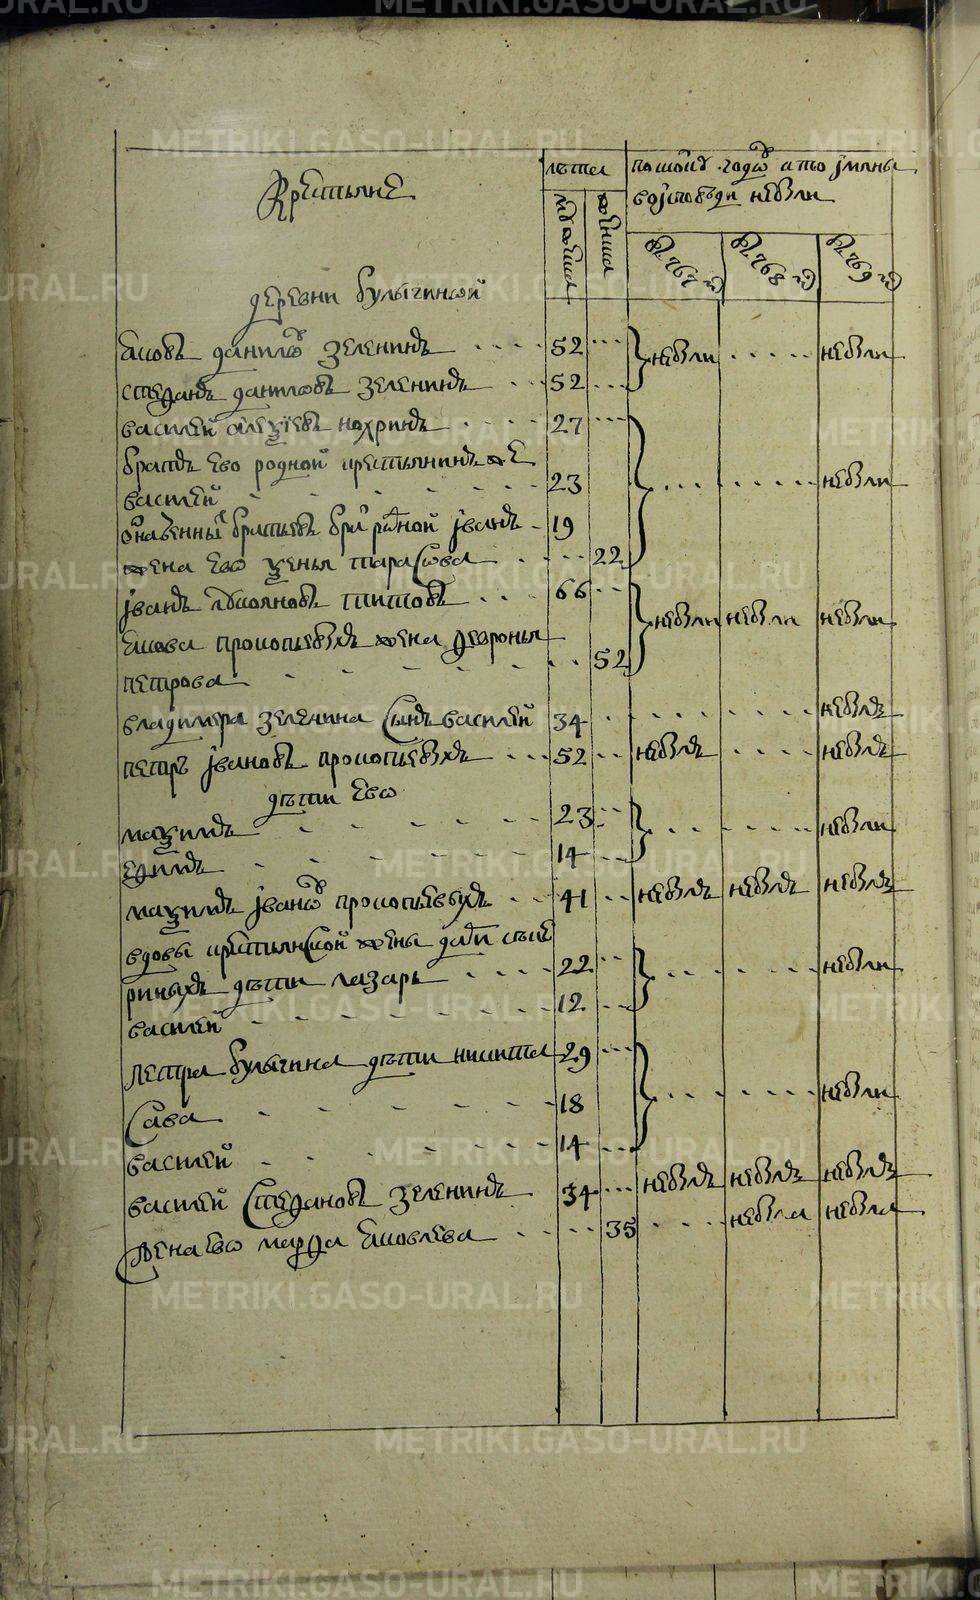 METRIKI.GASO-URAL.RU
Крестьяне
лѣта
мужеска
женска
по коим годом кто имяны
в ысповеди не были
в 1767 м
в 1768 м
в 1769 м
деревни булычиной
Яковъ даниловъ зеленинъ 52 не были не были
степанъ даниловъ зеленинъ 52
василей алеѯѣевъ нохринъ 27
братъ ево родной крестьянинъ же
василей 23 не были
братьевъ братъ родной иванъ 19
жена ево ѯенья тарасова 22
иванъ титовъ 66 не были не были не были
якова прокопьевыхъ жена февронья
петрова 52
владимера зеленина сынъ василей 34 не былъ
петръ ивановъ прокопьевыхъ 52 не былъ не былъ
дѣти ево
маѯимъ 23 не были
ефимъ 14
маѯимъ ивановъ прокопьевыхъ 41 не былъ не былъ не былъ
вдовы крестьянской жены
дѣти лазарь 22 не были
василей 12
петра булычина дѣти никита 29
сава 18 не были
василей 14
василей степановъ зеленинъ 34 не былъ не былъ не былъ
жена ево марфа яковлева 35 не была не была